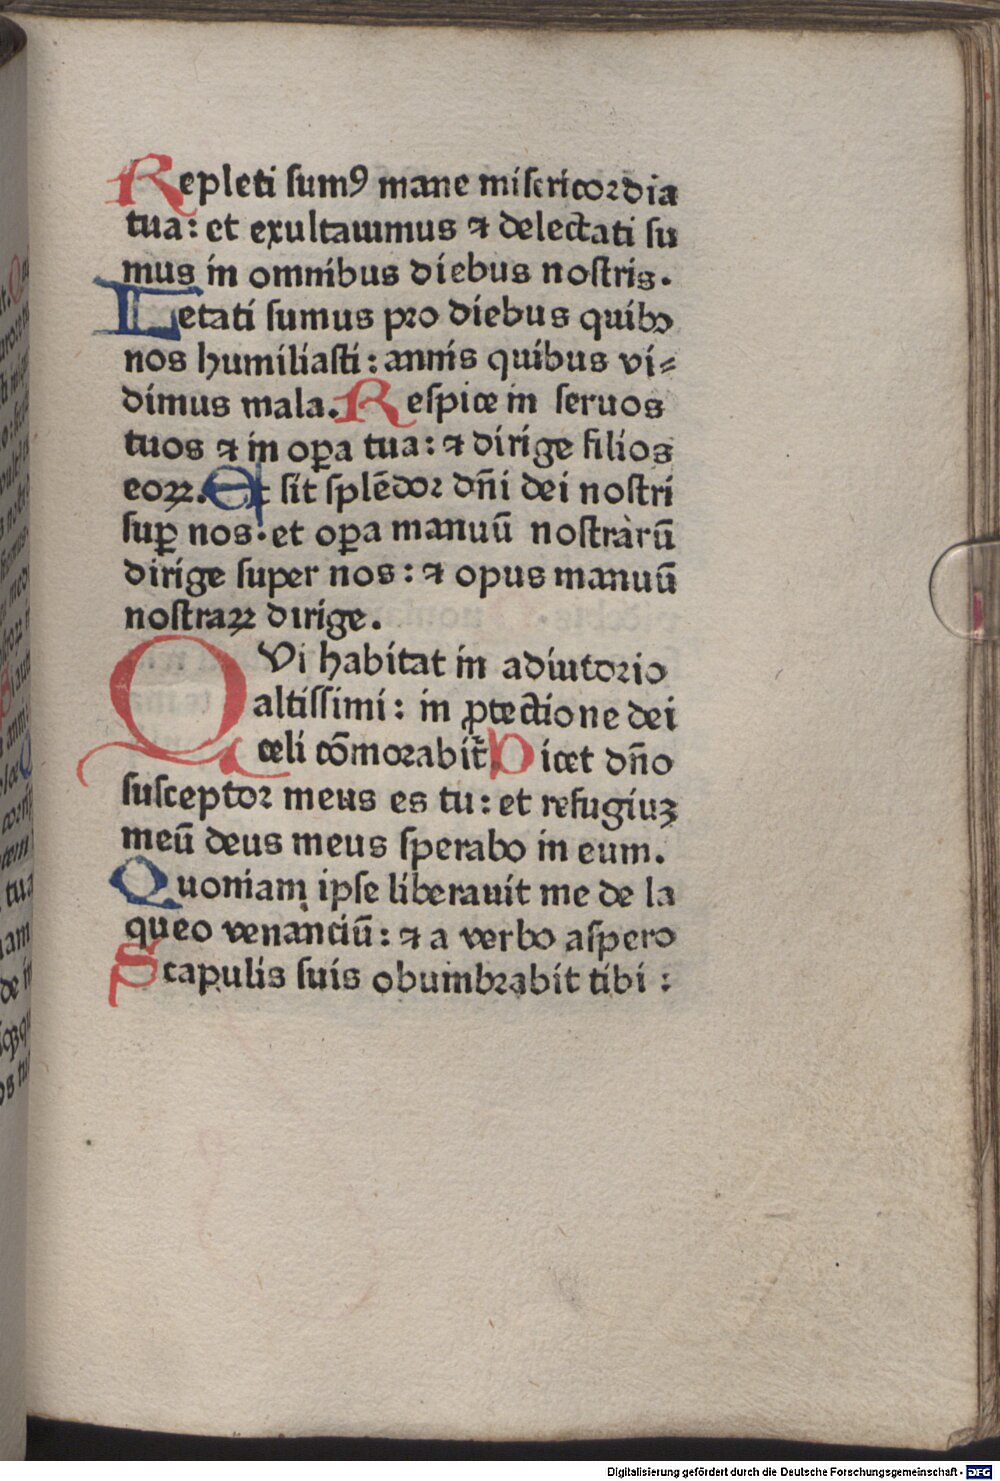 Repleti sumꝰ mane misericordia
tua: et exultauimus ⁊ delectati su
mus in omnibus diebus nostris.
Letati sumus pro diebus quibꝫ
nos humiliasti: annis quibus vi⸗
dimus mala. Respice in seruos
tuos ⁊ in oꝑa tua: ⁊ dirige filios
eoꝝ. Et sit splēdor dn̄i dei nostri
suꝑ nos. et oꝑa manuū nostrarū
dirige super nos: ⁊ opus manuū
nostraꝝ dirige.
QVi habitat in adiutorio
altissimi: in ꝓtectione dei
celi cōmorabit᷑. Dicet dn̄o
susceptor meus es tu: et refugiuꝫ
meū deus meus sperabo in eum.
Quoniam ipse liberauit me de la
queo venanciū: ⁊ a verbo aspero
Scapulis suis obumbrabit tibi:
Digitalisierung gefördert durch die Deutsche Forschungsgemeinschaft - DFG